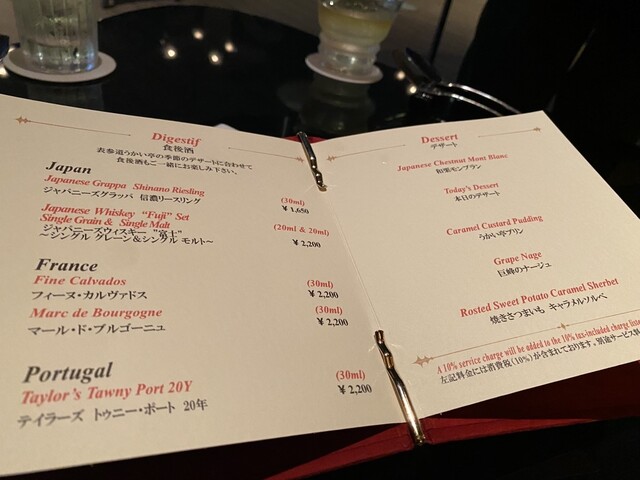 Digestif
食後酒
表参道うかい亭の季節のデザートに合わせて
食後酒もご一緒にお楽しみ下さい。
Japan
Japanese Grappa Shinano Riesling
(30ml)
ジャパニーズグラッパ 信濃リースリング
¥ 1,650
Japanese Whiskey "Fuji" Set
Single Grain & Single Malt
(20ml & 20ml)
ジャパニーズウィスキー "富士"
～シングル グレーン＆シングル モルト～
¥ 2,200
France
Fine Calvados
(30ml)
フィーヌ・カルヴァドス
¥ 2,200
Marc de Bourgogne
(30ml)
マール・ド・ブルゴーニュ
¥ 2,200
Portugal
Taylor's Tawny Port 20Y
(30ml)
テイラーズ トゥニー・ポート 20年
¥ 2,200
Dessert
デザート
Japanese Chestnut Mont Blanc
和栗モンブラン
Today's Dessert
本日のデザート
Caramel Custard Pudding
うかい亭プリン
Grape Nage
巨峰のナージュ
Rosted Sweet Potato Caramel Sherbet
焼きさつまいも キャラメルソルベ
A 10% service charge will be added to the 10% tax-included charge liste
左記料金には消費税(10%)が含まれております。別途サービス料